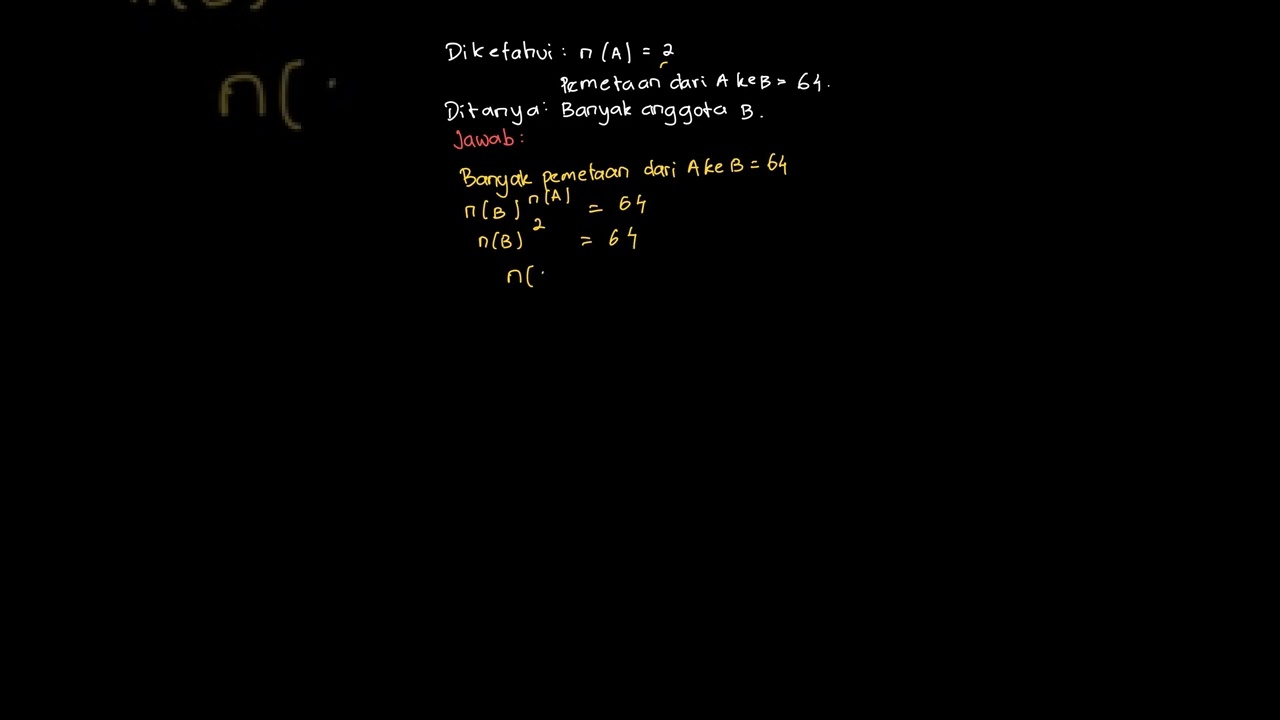 n(
Diketahui: n(A) = 2
Pemetaan dari A ke B = 64.
Ditanya: Banyak anggota B.
Jawab:
Banyak pemetaan dari A ke B = 64
n(B)^n(A) = 64
n(B)^2 = 64
n(